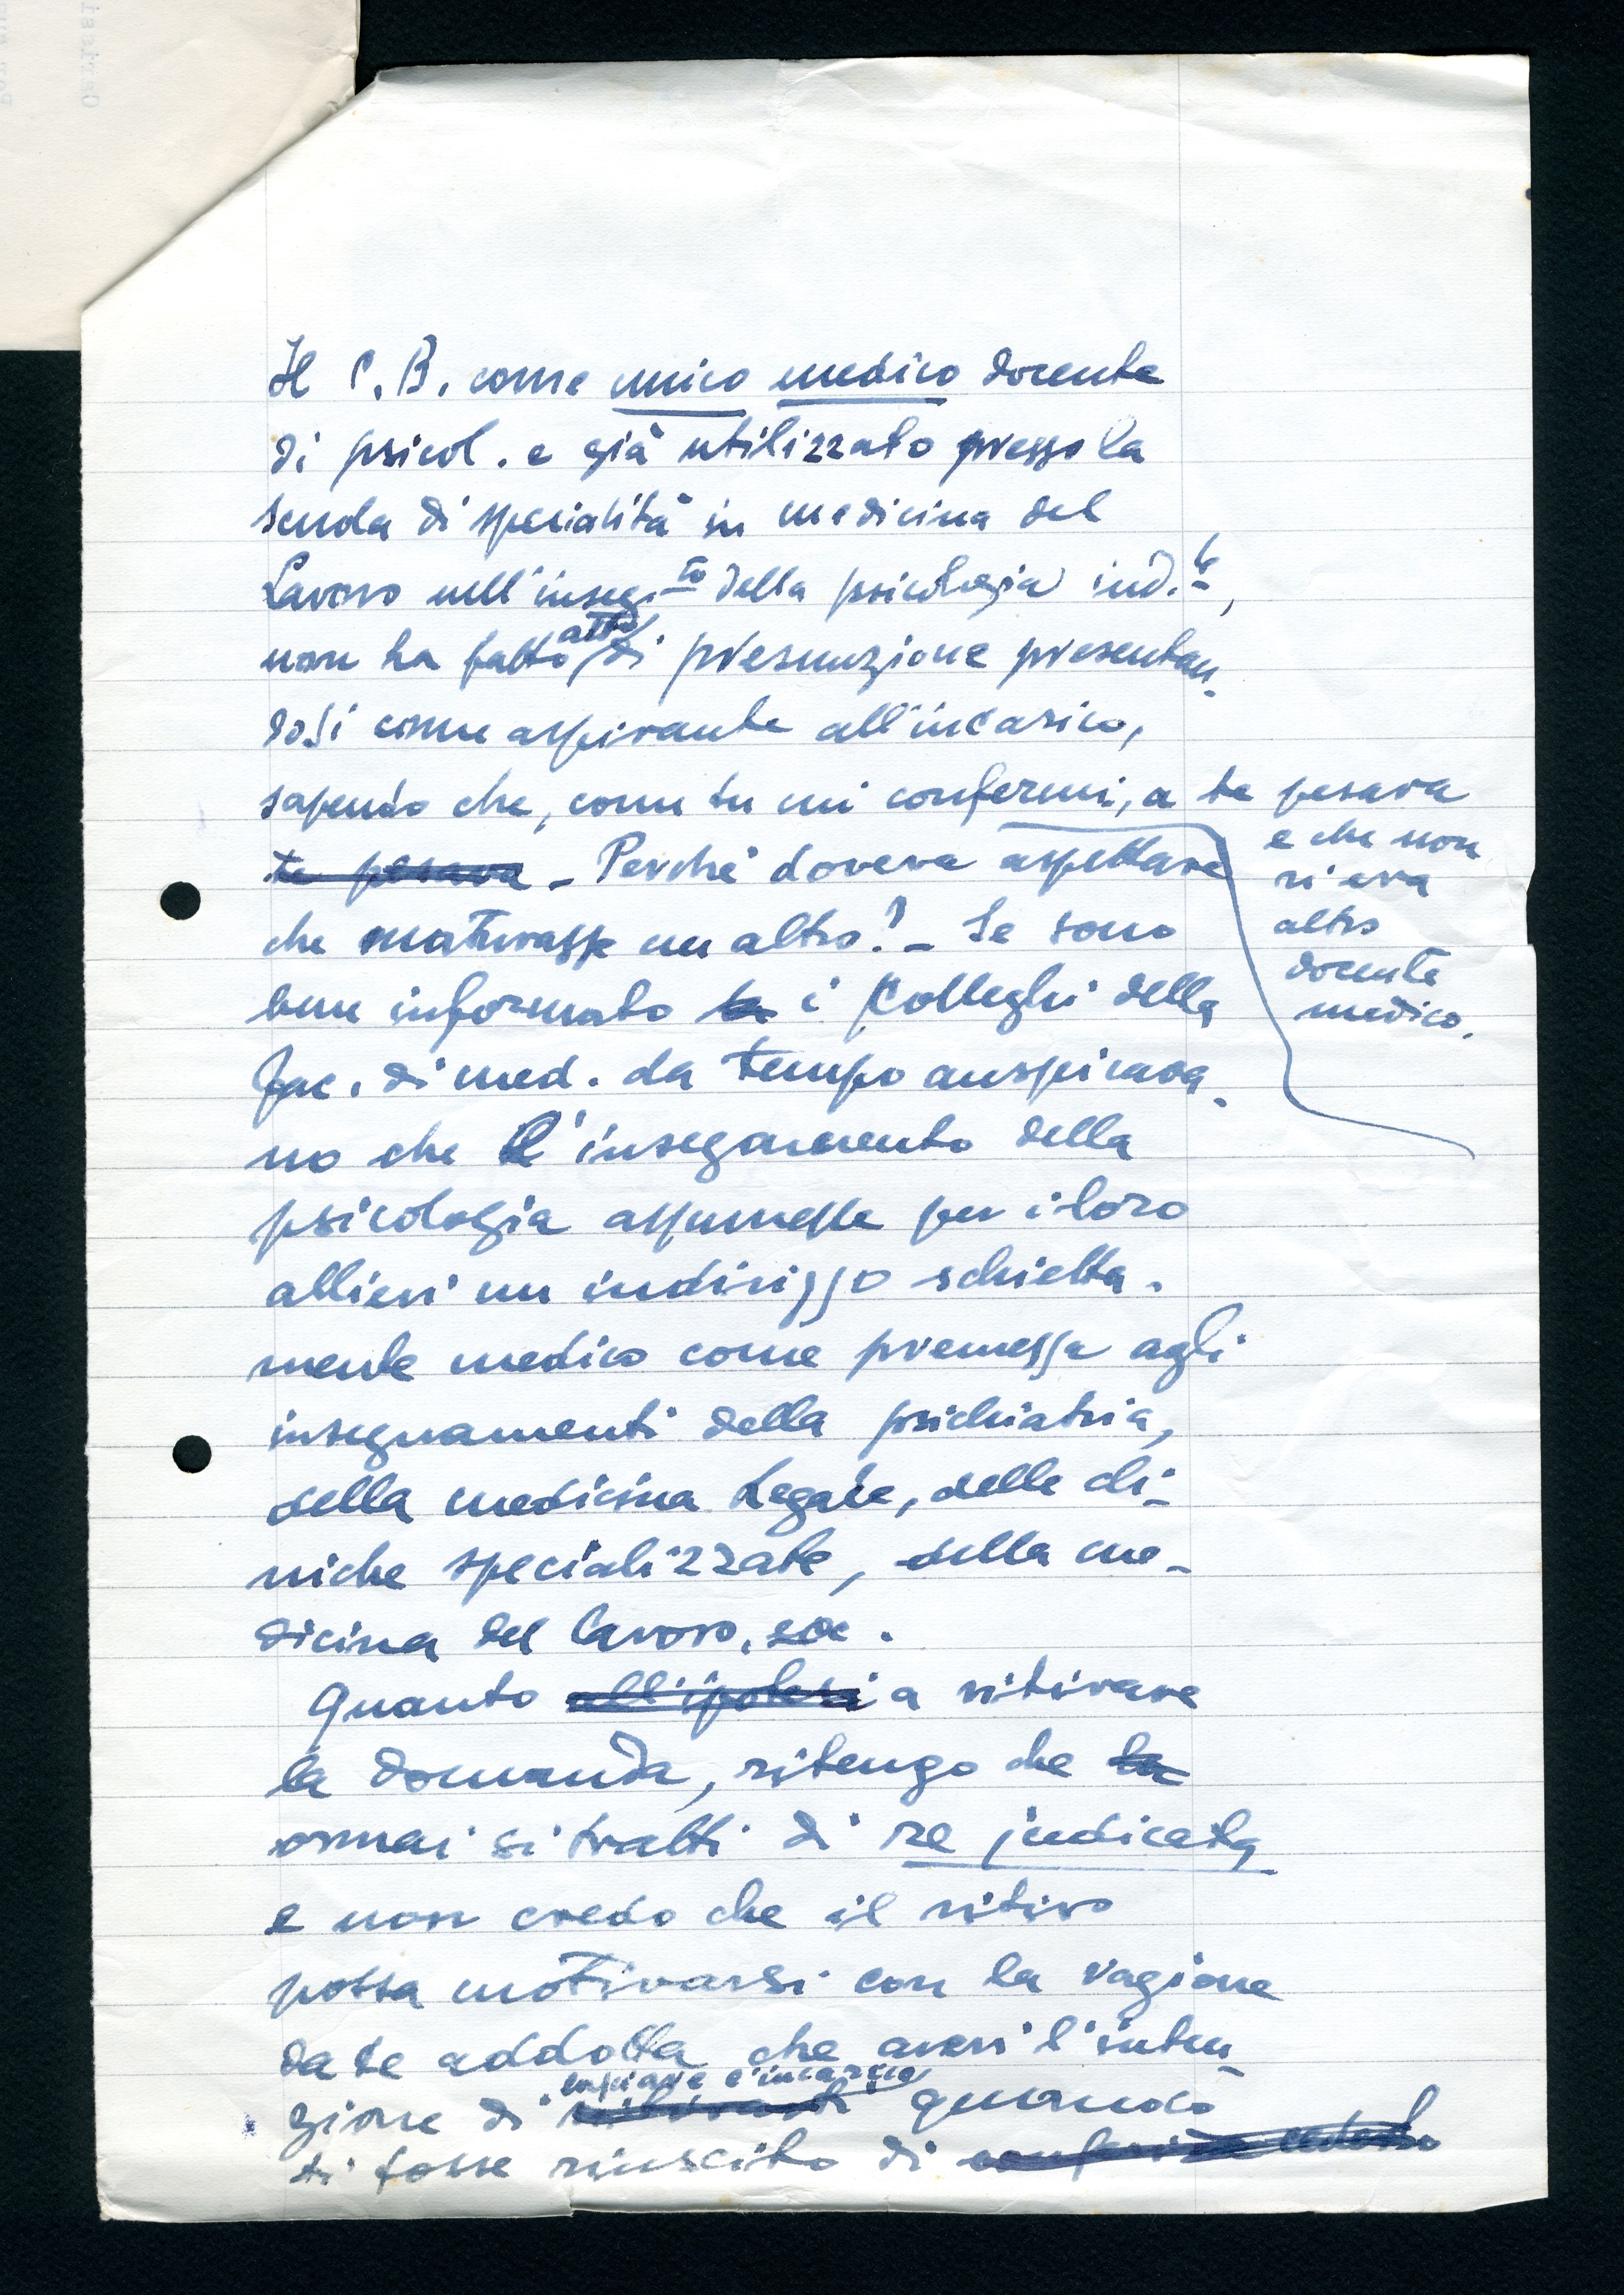 Il C.B. come unico medico docente
di psicol. e già utilizzato presso la
scuola di specialità in medicina del
Lavoro nell'inseg.to della psicologia ind.le,
non ha fatto atto di presunzione presentan-
dosi come aspirante all'incarico,
sapendo che, come tu mi confermi, a te pesava
e che non
vi era
altro
docente
medico.
te pesava - Perché doveva aspettare
che maturasse un altro? - Se sono
bene informato la i Colleghi della
Fac. di med. da tempo auspicava-
no che l'insegnamento della
psicologia assumesse per i loro
allievi un indirizzo schietta-
mente medico come premessa agli
insegnamenti della psichiatria,
della medicina Legale, delle cli-
niche specializzate, della me-
dicina del lavoro, ecc.
Quanto all'ipotesi a ritirare
la domanda, ritengo che la
ormai si tratti di re judicata,
e non credo che il ritiro
possa motivarsi con la ragione
da te addotta che avevi l'inten-
zione di lasciare l'incarico quando
ti fosse riuscito di